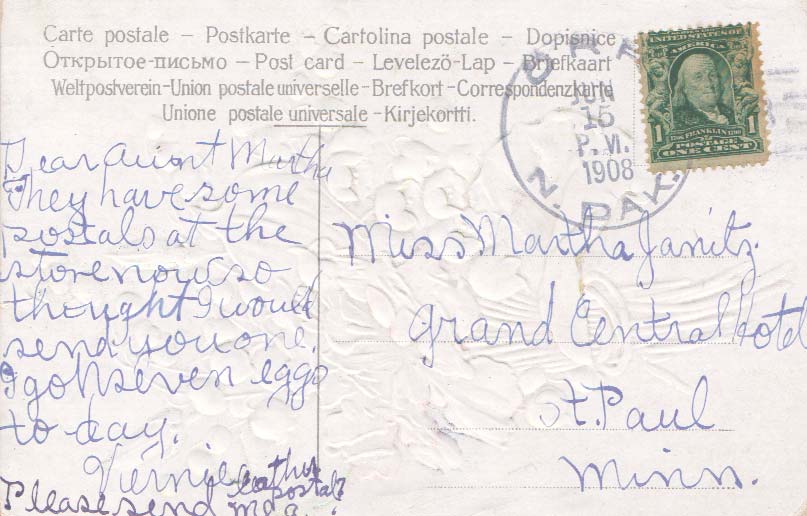 Carte postale – Postkarte – Cartolina postale – Dopisnice
Открытое-письмо – Post card – Levelező-Lap – Briefkaart
Weltpostverein-Union postale universelle-Brefkort-Correspondenzkarte
Unione postale universale – Kirjekortti.
UNITED STATES OF AMERICA
1 1
1706 FRANKLIN 1790
POSTAGE
ONE CENT
JUN
15
P.M.
1908
N. DAK.
Dear Auint Martha
They have some
postals at the
store now so
thought I would
send you one.
I got seven eggs
to day.
Vernie
Please send me a
leather
postal?
Miss Martha Janitz.
Grand Central Hotel
St. Paul
Minn.